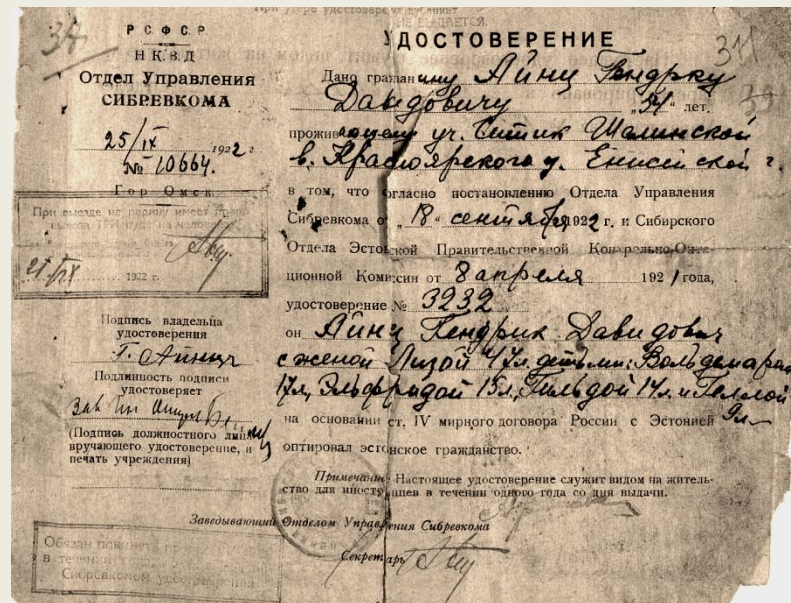 При утере удостоверения
НЕ ВЫДАЕТСЯ.
34
Р. С. Ф. С. Р.
Н. К. В. Д
Отдел Управления
СИБРЕВКОМА
25/IX 1922 г
№ 10664.
Гор Омск.
При выезде на родину имеет право
1922 г.
Подпись владельца
удостоверения
Г. Айнц
Подлинность подписи
удостоверяет
(Подпись должностного лица
вручающего удостоверение, и
печать учреждения)
Обязан покинуть
в течении
Сибревкомом удостоверения
УДОСТОВЕРЕНИЕ
Дано гражданину Айнц Гендрку
Давидовичу „34" лет.
прожив уч. Ситик Шалинской
в. Красноярского у. Енисейской г.
в том, что согласно постановлению Отдела Управления
Сибревкома о „18" сентября 1922 г. и Сибирского
Отдела Эстонской Правительственной Контрольно,Опта-
ционной Комиссии от 8 апреля 1921 года,
удостоверение № 3232
он Айнц Гендрик Давидович
с женой Лизой 47 л. детьми: Вольдемаром
17л, Эльфридой 15л, Гильдой 14л. и Геллой
9л
на основании ст. IV мирного договора России с Эстонией
оптировал эстонское гражданство.
Примечание Настоящее удостоверение служит видом на житель-
ство для иностранцев в течении одного года со дня выдачи.
Заведывающий Отделом Управления Сибревкома
Секретарь